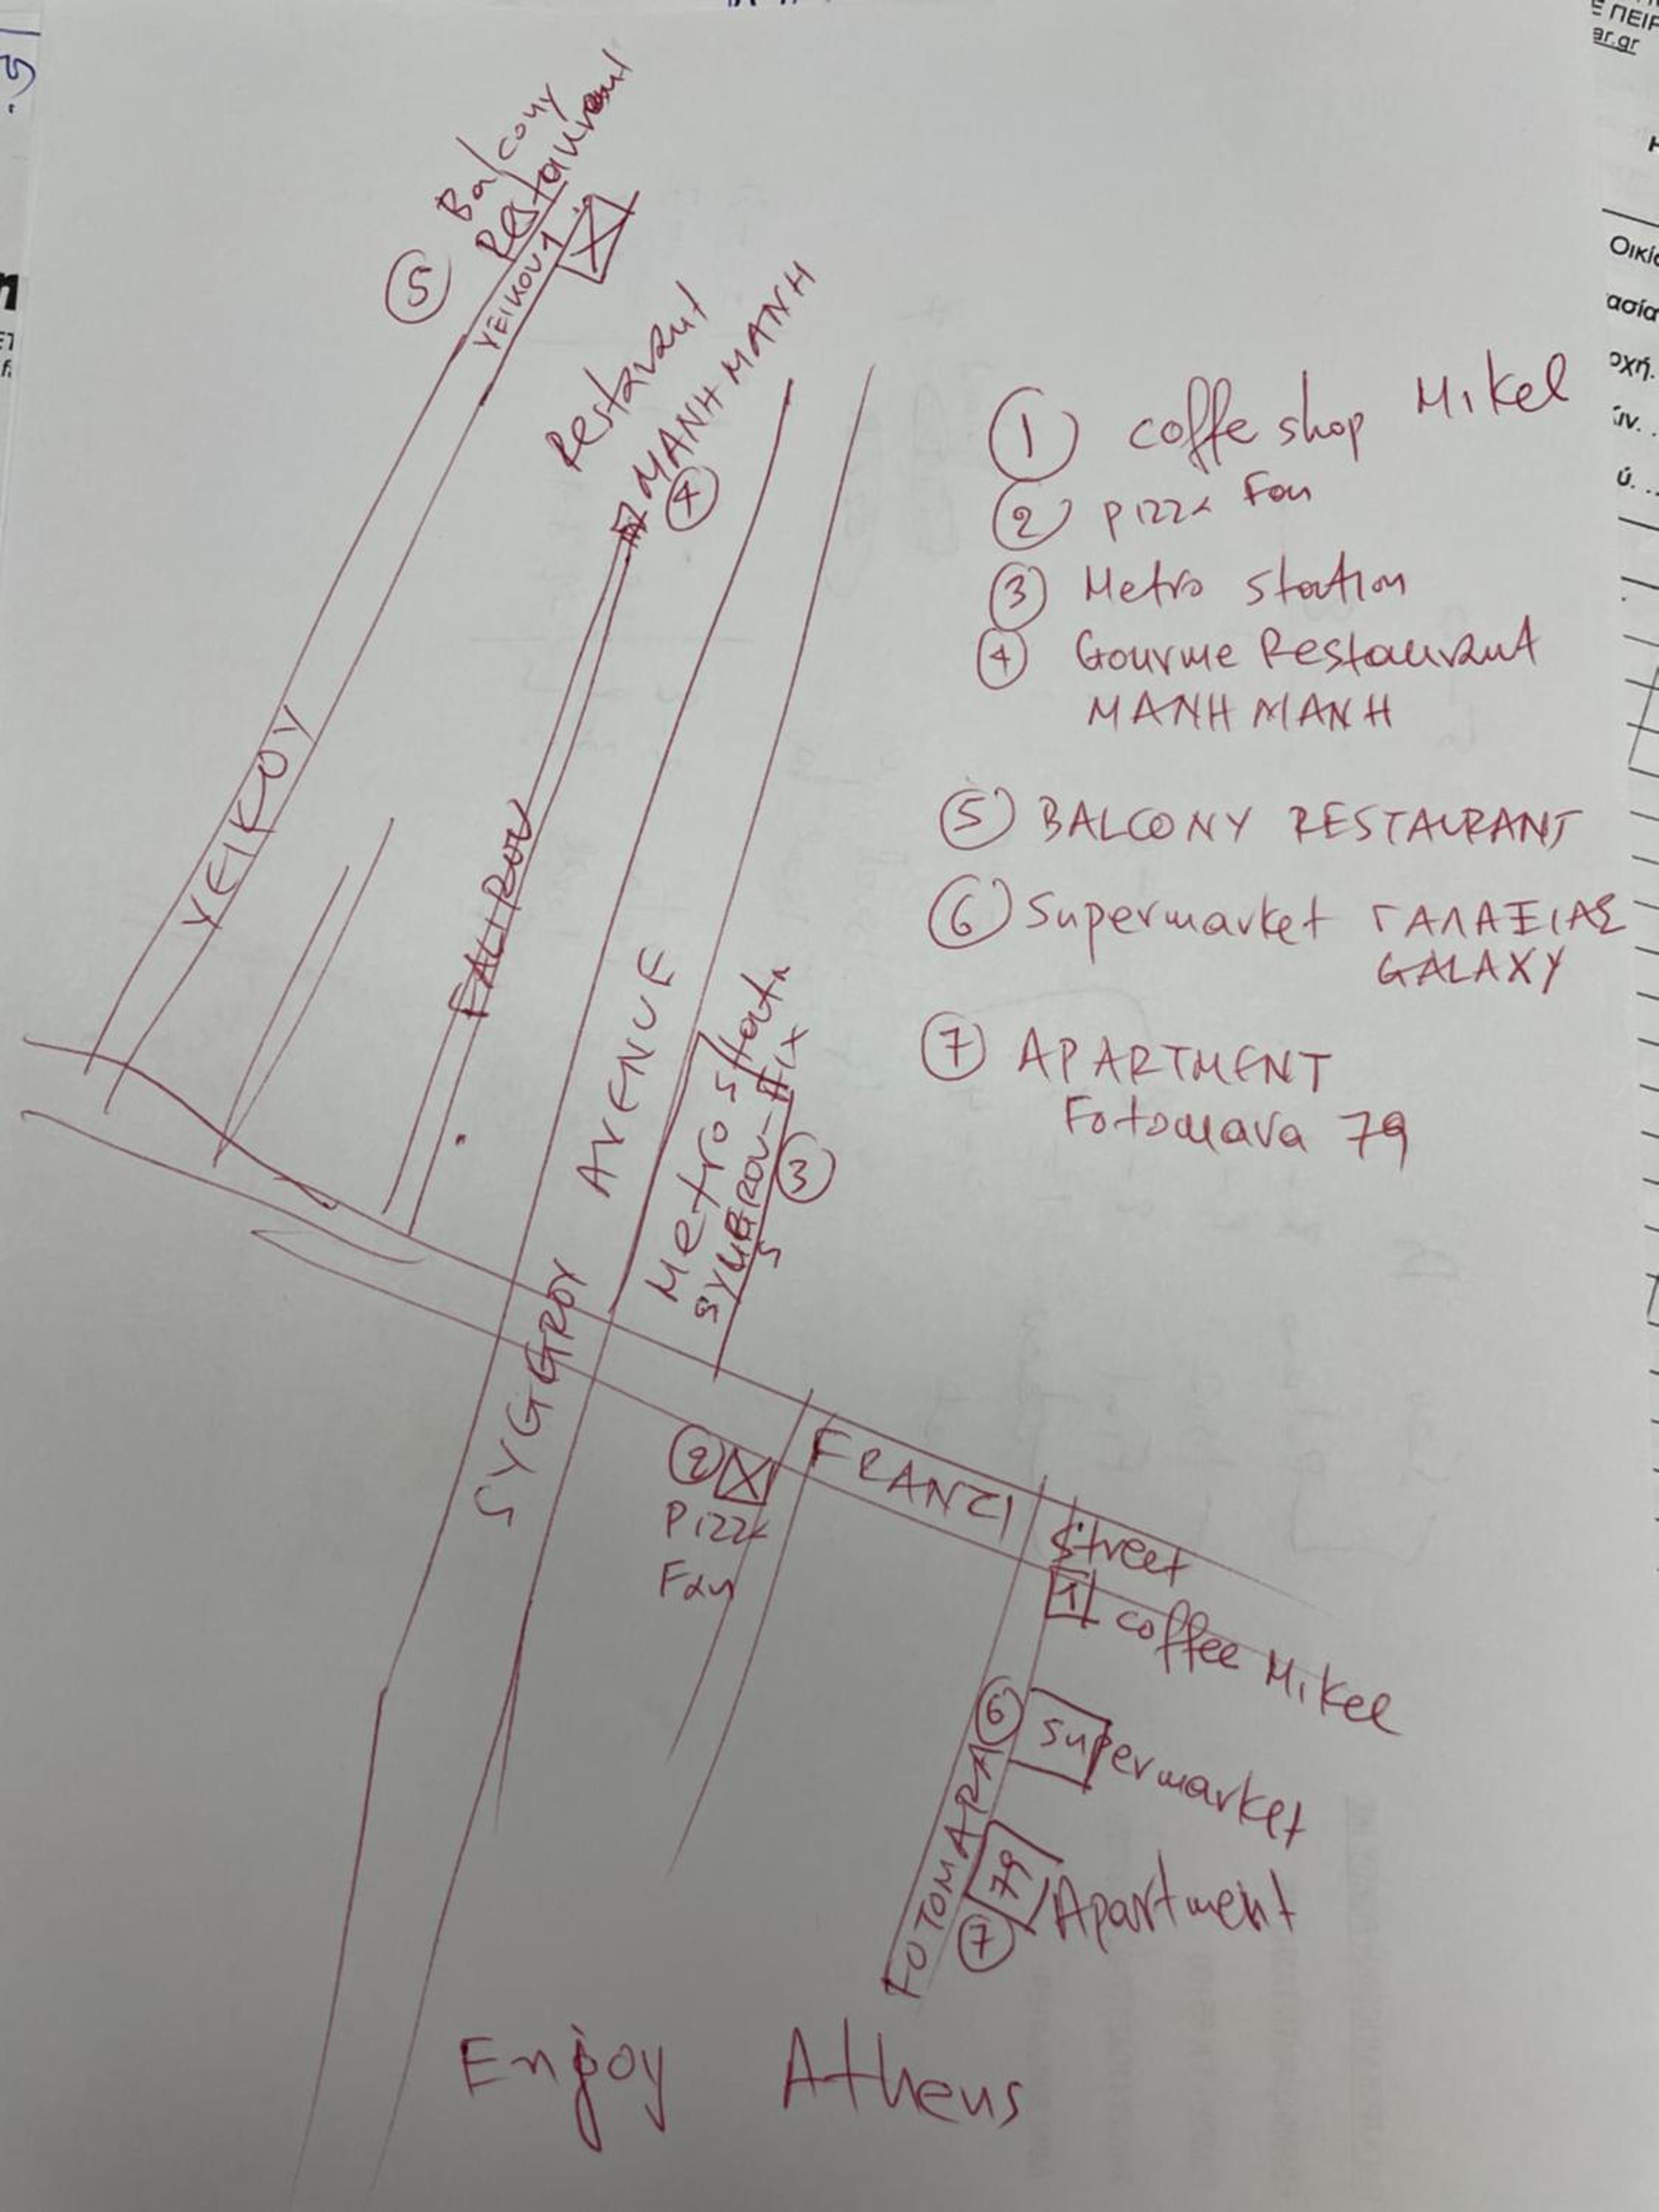 Ε ΠΕΙΡ
ar.gr
Οικία
ασία
οχή.
ύ. ..
Balcony
Restaurant
5
VEIKOU 1
Restaurant
MANH MANH
4
VEIKOY
FALIROU
SYGGROY AVENUE
Metro station
SYGGROU-FIX
3
1 coffe shop Mikel
2 Pizza Fan
3 Metro Station
4 Gourme Restaurant
MANH MANH
5 BALCONY RESTAURANT
6 Supermarket ΓΑΛΑΞΙΑΣ
GALAXY
7 APARTMENT
Fotomara 79
2
Pizza
Fan
FRANZI Street
1 coffee Mikel
6 Supermarket
FOTOMARA
79 Apartment
7
Enjoy Athens